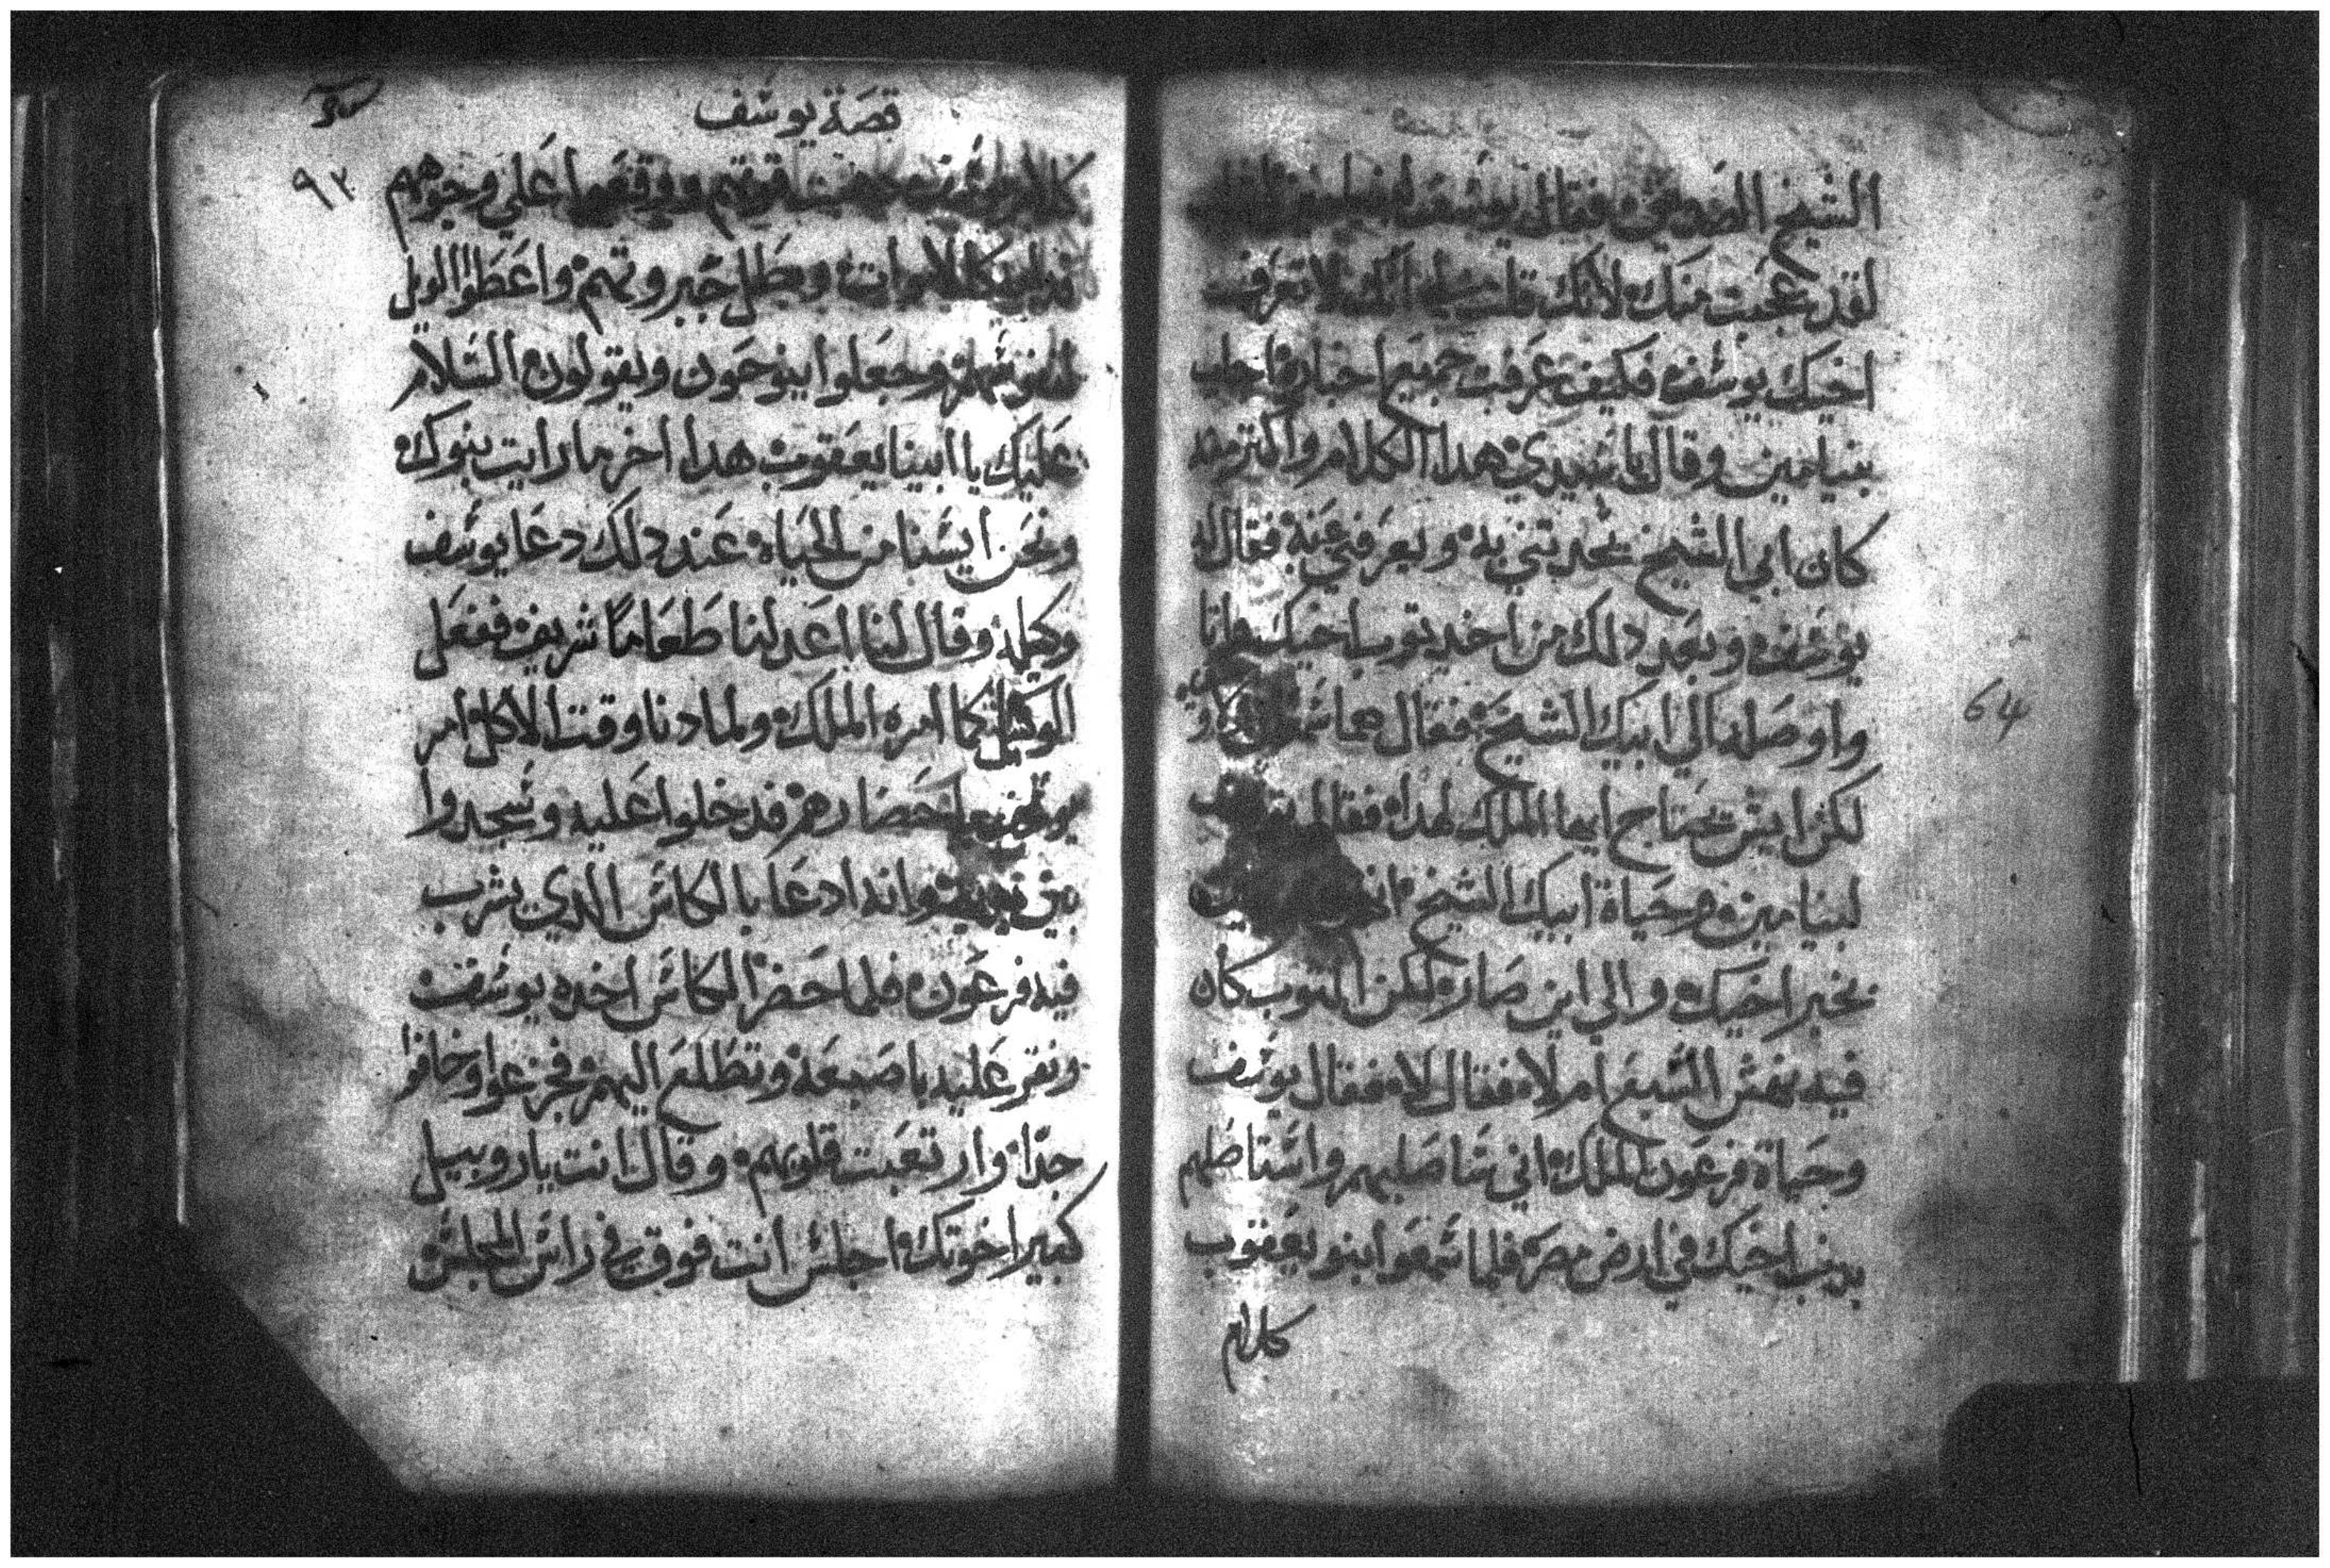 الشيخ الضعيف فقال يوسف لبنيامين
لقد عجبت منك لانك قلت لي انك لا تعرف
اخيك يوسف فكيف عرفت جميع اخباره اجاب
بنيامين وقال يا سيدي هدا الكلام واكتر منه
كان ابي الشيخ يحدتني به ويعرفني عنه فقال له
يوسف وبعد دلك من اخد توب اخيك
واوصله الي ابيك الشيخ فقال هما و
لكن ايش تحتاج ايها الملك لهدا فقال
لبنيامين وحياة ابيك الشيخ
بخبر اخيك والي اين صار لكن التوب كان
فيه نهش السبع ام لا فقال لا فقال يوسف
وحياة فرعون الملك اني سا صلبهم واستاصلهم
بدنب اخيك في ارض مصر فلما سمعوا بنو يعقوب
كلام
قصة يوسف
٩٣
كلام يوسف قوتهم ووقعوا علي وجوههم
كالاموات وبطل جبروتهم واعطوا الويل
لنفوسهم وجعلوا ينوحون ويقولون السلام
عليك يا ابينا يعقوب هدا اخر ما رايت بنوك
ونحن ايسنا من الحياه عند دلك دعا يوسف
وكيله وقال لنا اعد لنا طعاما شريف ففعل
الوكيل كما امره الملك ولما دنا وقت الاكل امر
يوسف باحضارهم فدخلوا عليه وسجدوا
بين يديه وانه ادعا بالكاس الدي يشرب
فيه فرعون فلما حضر الكاس اخده يوسف
ونقر عليه باصبعه وتطلع اليهم فجزعوا وخافوا
جدا وارتعبت قلوبهم وقال انت يا روبيل
كبير اخوتك اجلس انت فوق في راس المجلس
64